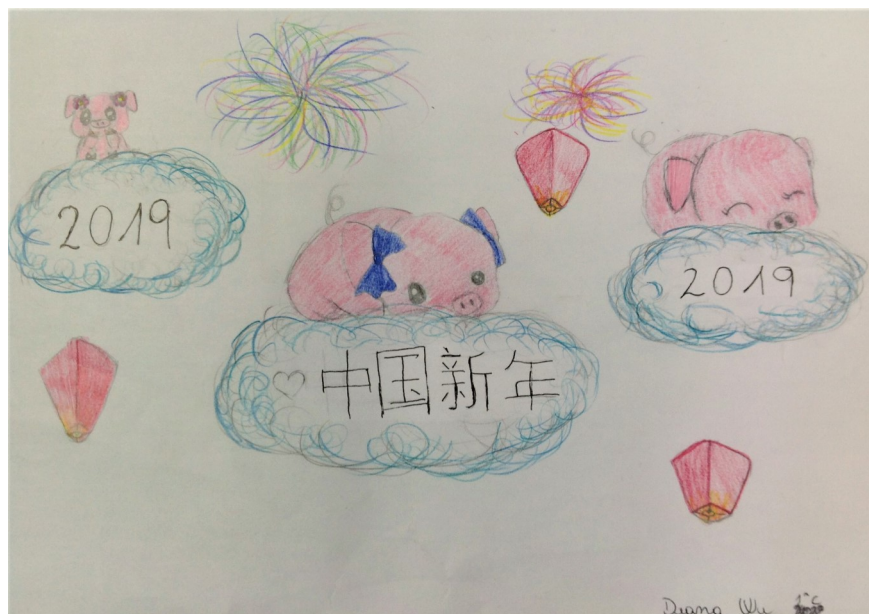 2019
2019
♡ 中国新年
Diana Wu 1°C